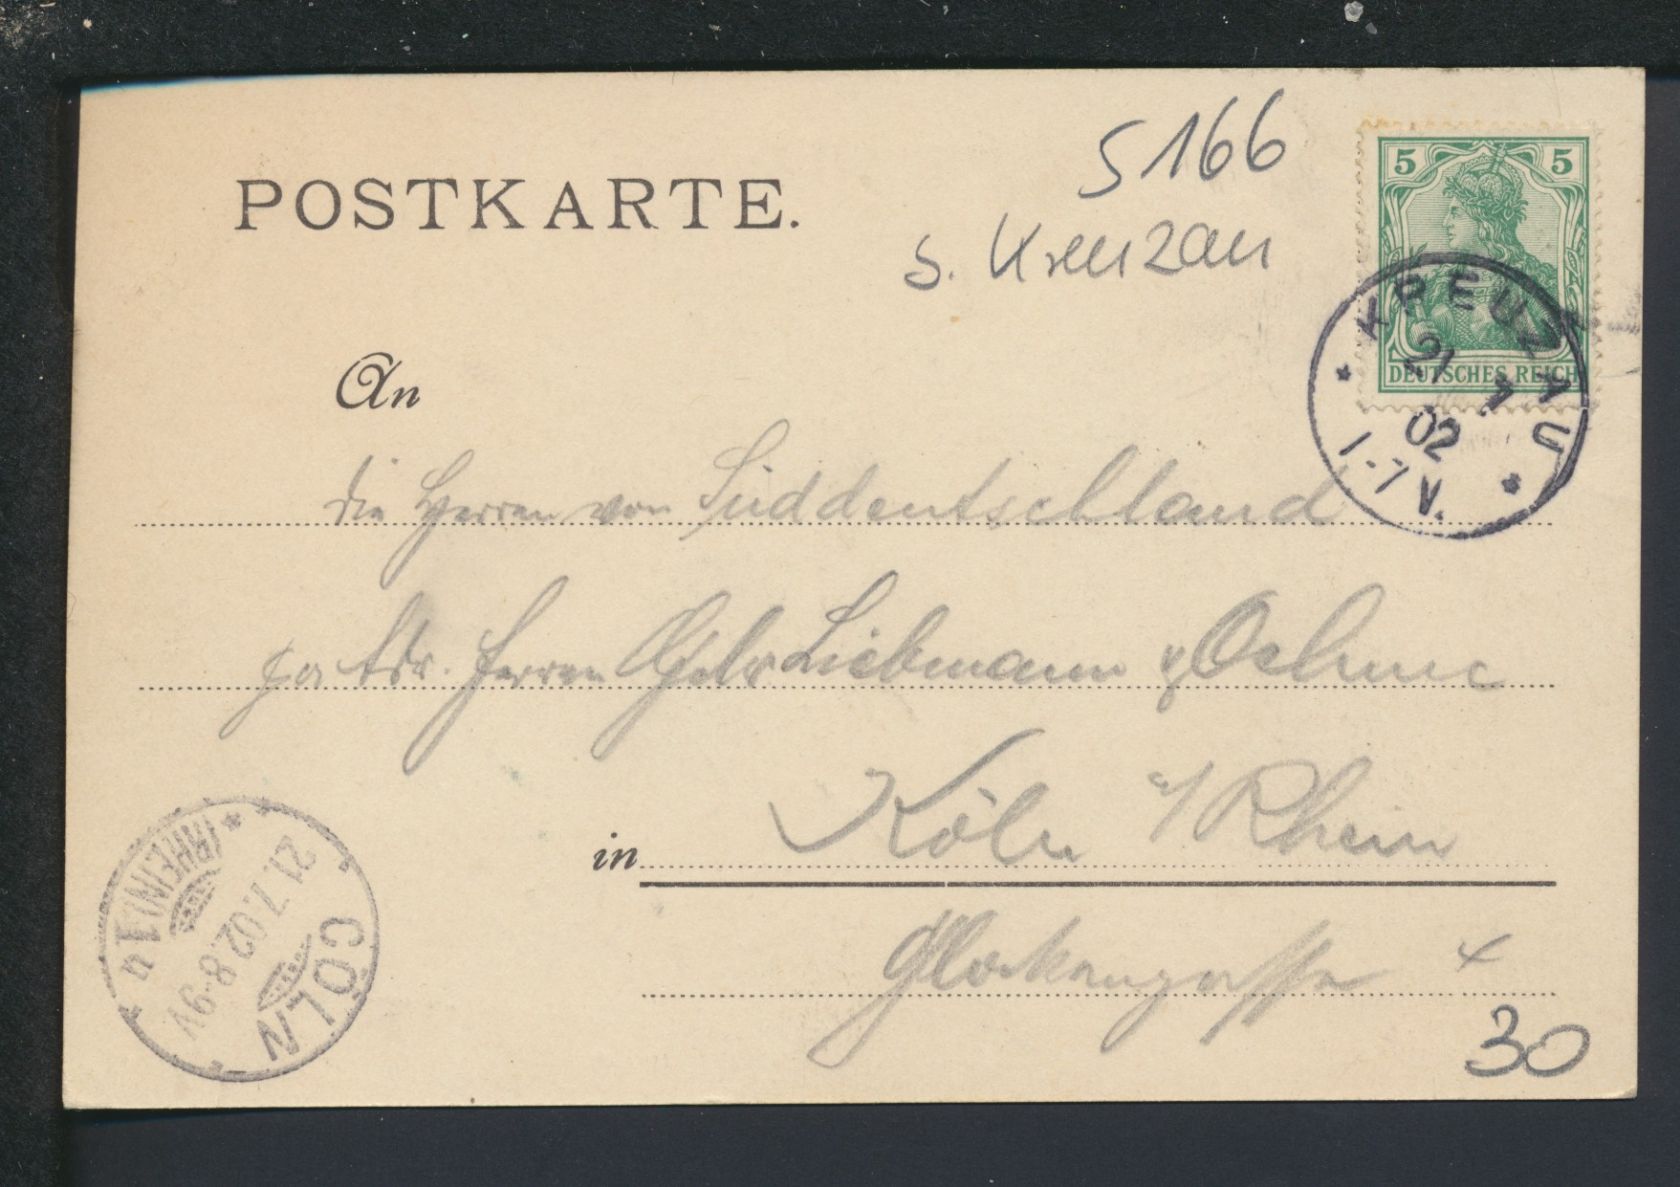 S166
POSTKARTE.
S. Kreuzau
5 5
DEUTSCHES REICH
KREUZAU
21 7
02
1-7 V.
An
die Herren von Süddeutschland
Herren Liebmann & Oehme
in Köln a/Rhein
Glockengasse
30
CÖLN
21.7.02.8-9V
(RHEIN)1u